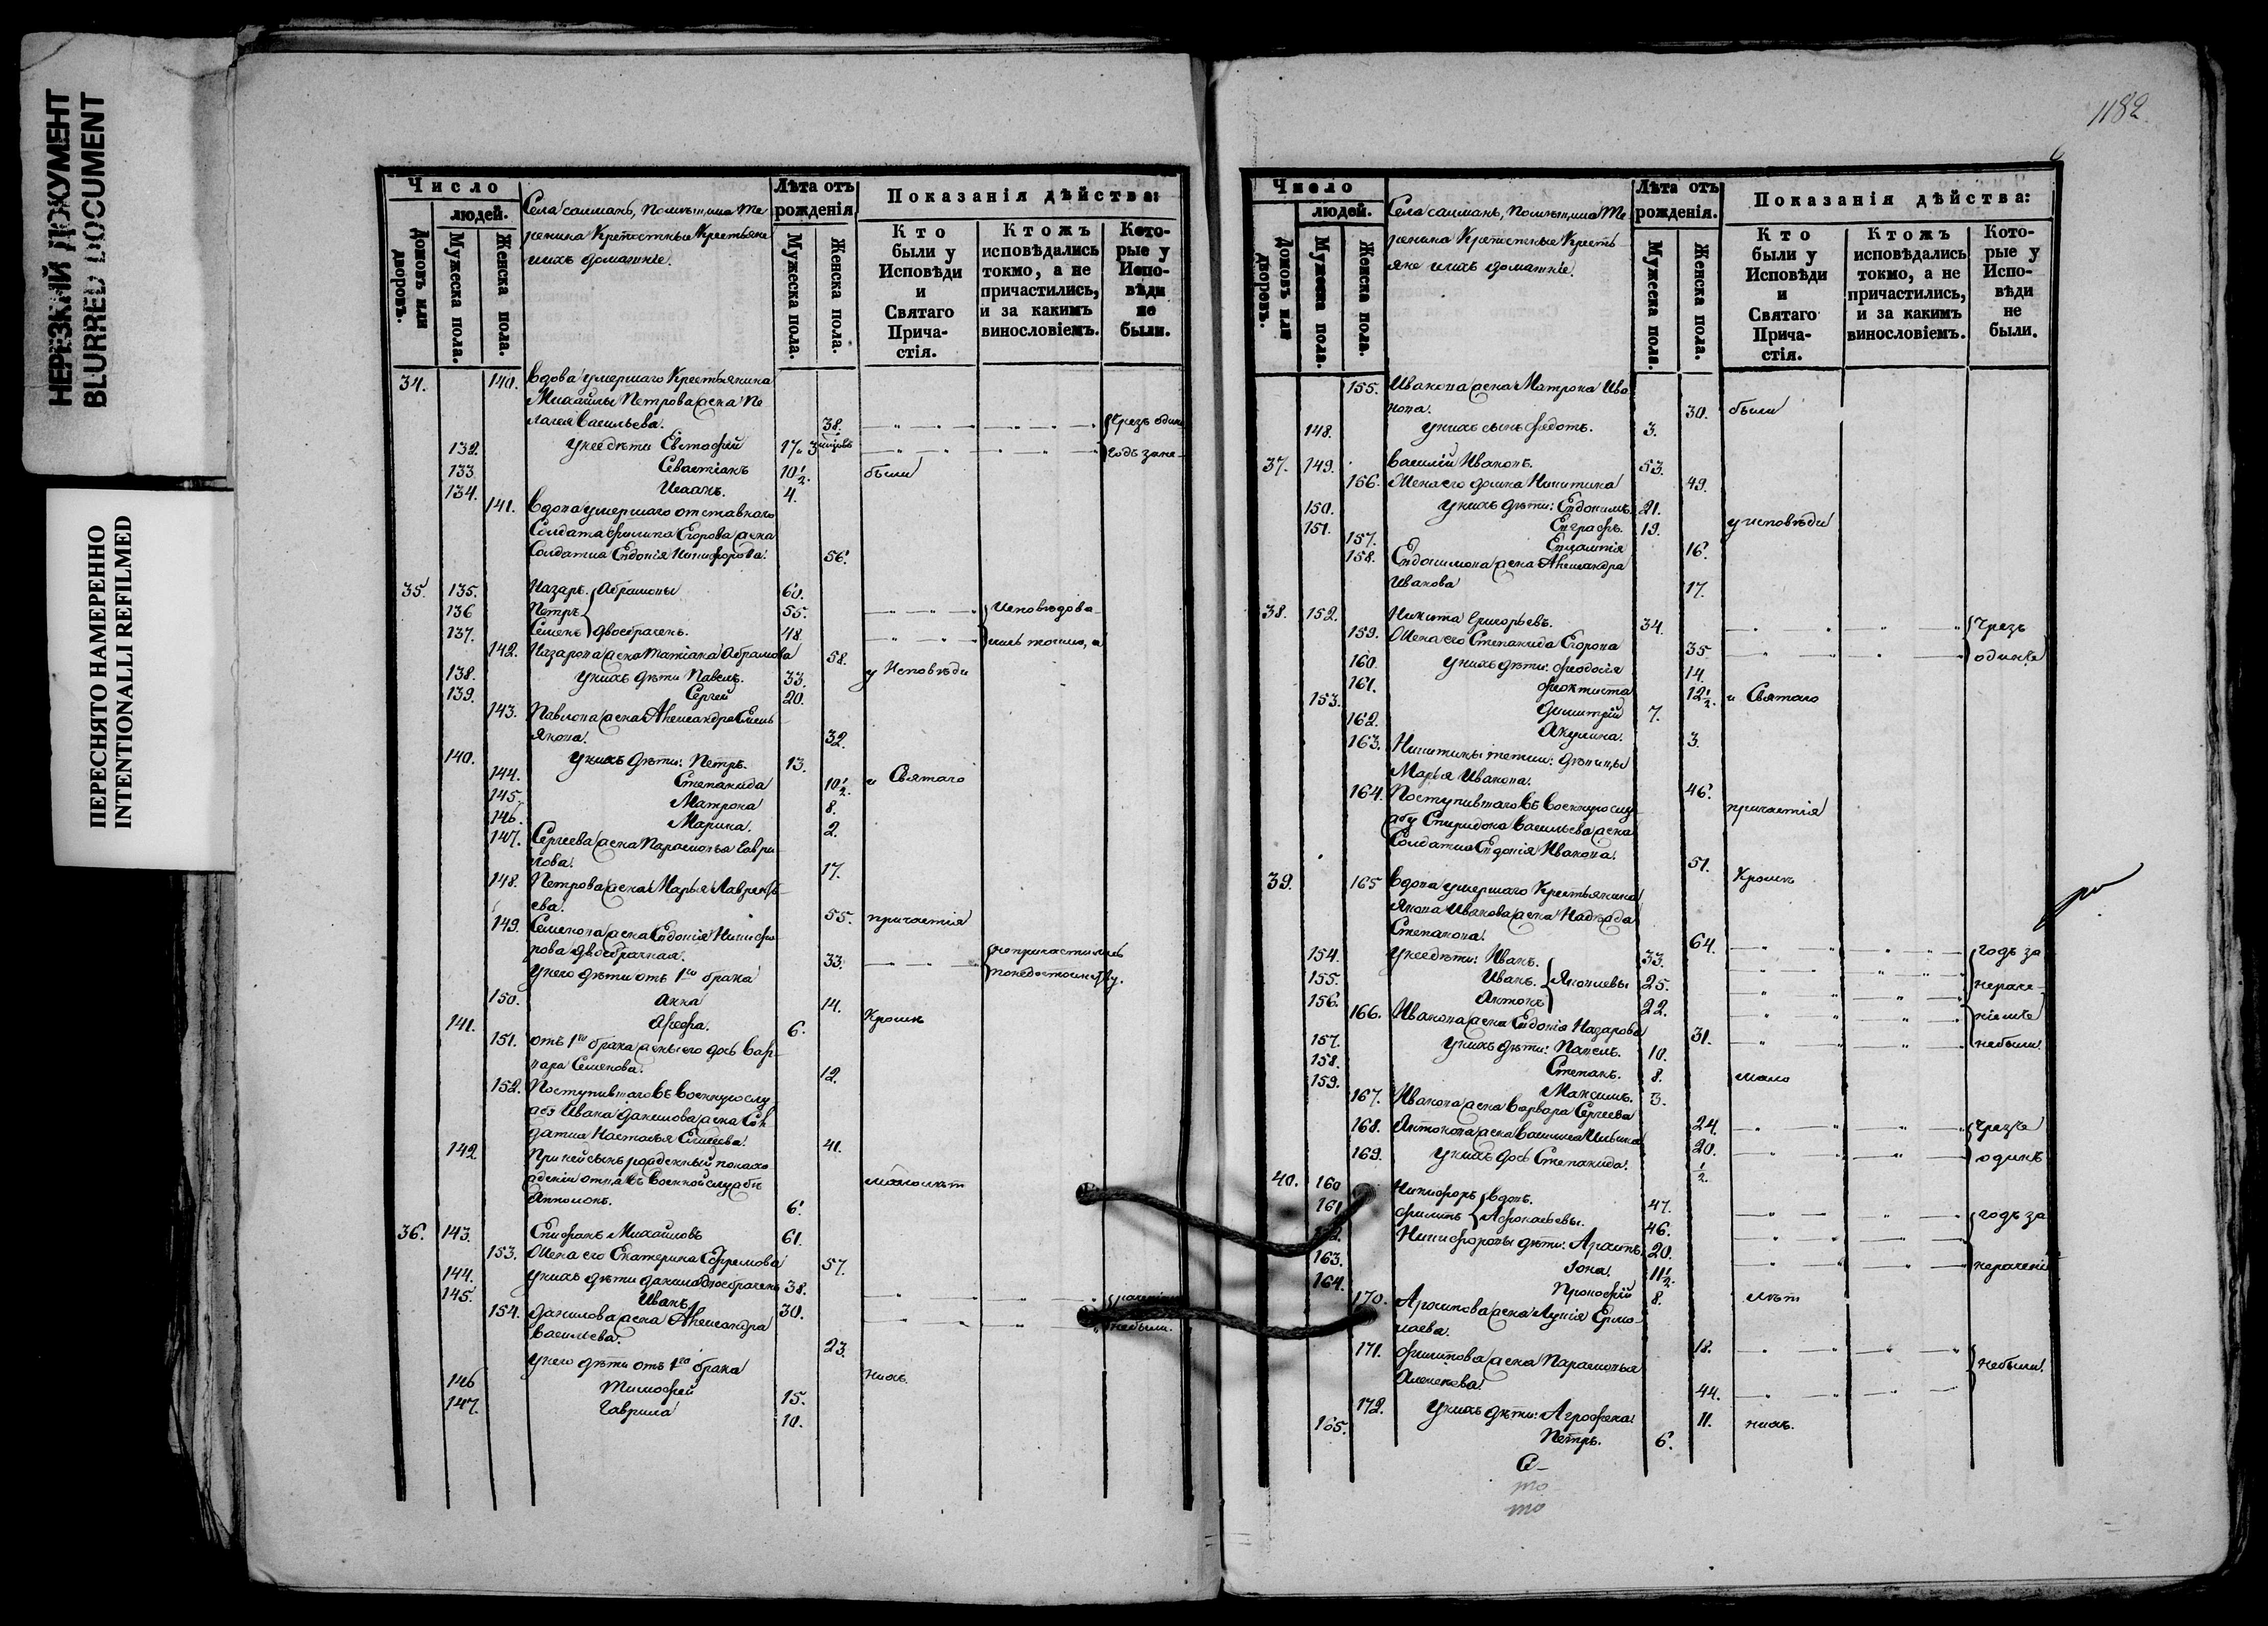 НЕРЕЗКИЙ ДОКУМЕНТ
BLURRED DOCUMENT
ПЕРЕСНЯТО НАМЕРЕННО
INTENTIONALLI REFILMED
Число
людей.
Домовъ или дворовъ.
Мужеска пола.
Женска пола.
Села Салманъ, помѣщика Те
ренина Крѣпостные Крестьяне
и ихъ домашніе.
Лѣта отъ рожденія
Мужеска пола.
Женска пола.
Показанія дѣйства:
Кто были у Исповѣди и Святаго Прича-стія.
Ктожъ исповѣдались токмо, а не причастились, и за какимъ винословіемъ.
Кото-рые у Испо-вѣди не были.
34. 140. Вдова умершаго Крестьянина
Михайлы Петрова жена Пе
лагея Васильева. 38. чрезъ одинъ
132. У нее дѣти Евстафей 17. годъ за не-
133 Севастіанъ 10½. были
134. Исаакъ. 4.
141. Вдова умершаго отставнаго
Солдата Филипа Егорова жена
Солдатка Евдокія Никифорова. 56.
35. 135. Назаръ. Абрамовы 60.
136 Петръ 55. Исповѣдова-
137. Семенъ двоебраченъ. 48. лись токмо, а
142. Назарова жена Татіана Абрамова 58.
138. У нихъ дѣти Павелъ. 33. у Исповѣди
139. Сергей 20.
143. Павлова жена Александра Емель
янова. 32.
140. У нихъ дѣти: Петръ. 13.
144. Степанида 10½. и Святаго
145. Матрона 8.
146. Марина. 2.
147. Сергеева жена Парасковья Гаври
лова. 17.
148. Петрова жена Марья Лаврентье-
ева. 55. причастія
149. Семенова жена Евдокія Никифо
рова двоебрачная. 33. не причастились
У него дѣти отъ 1го брака по недостоинству.
150. Анна 14.
141. Арефа. 6. Кромѣ
151. отъ 1го брака жены его дочь Вар-
вара Семенова. 12.
152. Поступившаго въ Военную слу
жбу Ивана Данилова жена Сол
датка Настасья Елисеева. 41.
142. При ней сынъ рожденный по нахо
жденіи отца въ Военной службѣ
Апполонъ. 6. малолѣт
36. 143. Епифанъ Михайловъ 61.
153. Жена его Екатерина Ефремова 57.
144. У нихъ дѣти Данила двоебраченъ 38.
145. Иванъ 30.
154. Данилова жена Александра небыли.
Васильева. 23.
У него дѣти отъ 1го брака
146 Тимофей 15. нихъ.
147. Гаврила 10.
1182
Число
людей.
Домовъ или дворовъ.
Мужеска пола.
Женска пола.
Села Салманъ, помѣщика Те-
ренина Крѣпостные Кресть
яне и ихъ домашніе.
Лѣта отъ рожденія.
Мужеска пола.
Женска пола.
Показанія дѣйства:
Кто были у Исповѣди и Святаго Прича-стія.
Ктожъ исповѣдались токмо, а не причастились, и за какимъ винословіемъ.
Кото-рые у Испо-вѣди не были.
155. Иванова жена Матрона Ива
нова. 30. были
148. У нихъ сынъ Федотъ. 3.
37. 149. Василій Ивановъ. 53.
156. Жена его Домна Никитина 49.
150. У нихъ дѣти: Евдокимъ. 21.
151. Евграфъ. 19. у исповѣди
157. Евлампія 16.
158. Евдокимова жена Александра
Иванова 17.
38. 152. Никита Григорьевъ. 34. Чрезъ
159. Жена его Степанида Егорова 35 одинъ
160. У нихъ дѣти: Феодосія 14.
161. Феоктиста 12½. и Святаго
153. Димитрій 7.
162. Акулина. 3.
163. Никитины тетки: дѣвица
Марья Иванова. 46.
164. Поступившаго въ Военную слу причастія
жбу Спиридона Васильева жена
Солдатка Евдокія Иванова. 51.
39. 165 Вдова умершаго Крестьянина Кромѣ
Якова Иванова жена Надежда
Степанова. 64.
154. У нее дѣти: Иванъ. 33. годъ за
155. Иванъ. Яковлевы 25. нераче-
156. Антонъ 22. ніемъ
166. Иванова жена Евдокія Назарова 31. небыли.
157. У нихъ дѣти: Павелъ. 10.
158. Степанъ. 8. мало
159. Максимъ. 3.
167. Иванова жена Варвара Сергеева 24. чрезъ
168. Антонова жена Василиса Ильина 20. одинъ
169. У нихъ дочь Степанида. ½.
40. 160 Никифоръ вдовъ. 47. годъ за
161 Филипъ Афонасьевы. 46.
162. Никифоровы дѣти: Архипъ. 20. нерачені
163. Іона. 11½.
164. Прокофій 8. лѣт
170. Архипова жена Лукія Ермо-
лаева. 18.
171. Филипова жена Парасковья небыли.
Алексеева. 44.
172. У нихъ дѣти: Агрофена. 11. нихъ.
165. Петръ. 6.